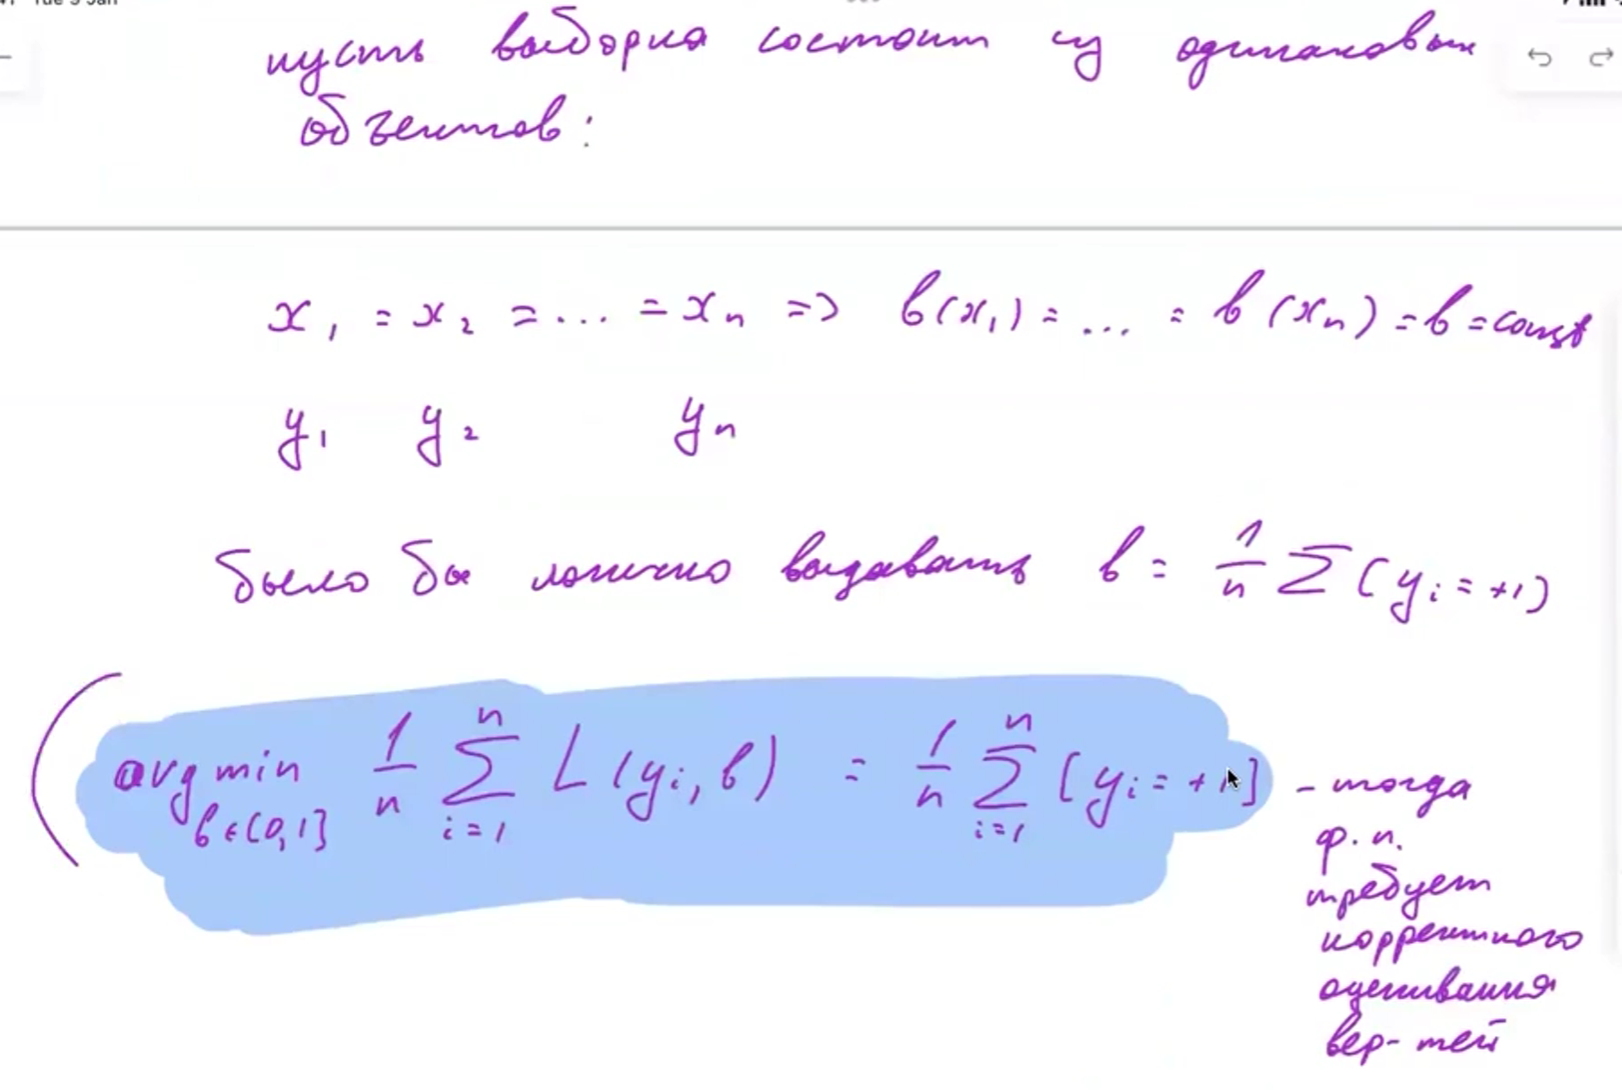 Tue 3 Jan
пусть выборка состоит из одинаковых
объектов:
x₁ = x₂ = ... = xₙ => b(x₁) = ... = b(xₙ) = b = const
y₁ y₂ yₙ
было бы логично выдавать b = 1/n Σ [yᵢ = +1)
argmin b∈[0,1] 1/n Σ i=1 n L(yᵢ, b) = 1/n Σ i=1 n [yᵢ = +1] - тогда
ф. п.
требует
корректного
оценивания
вер-тей